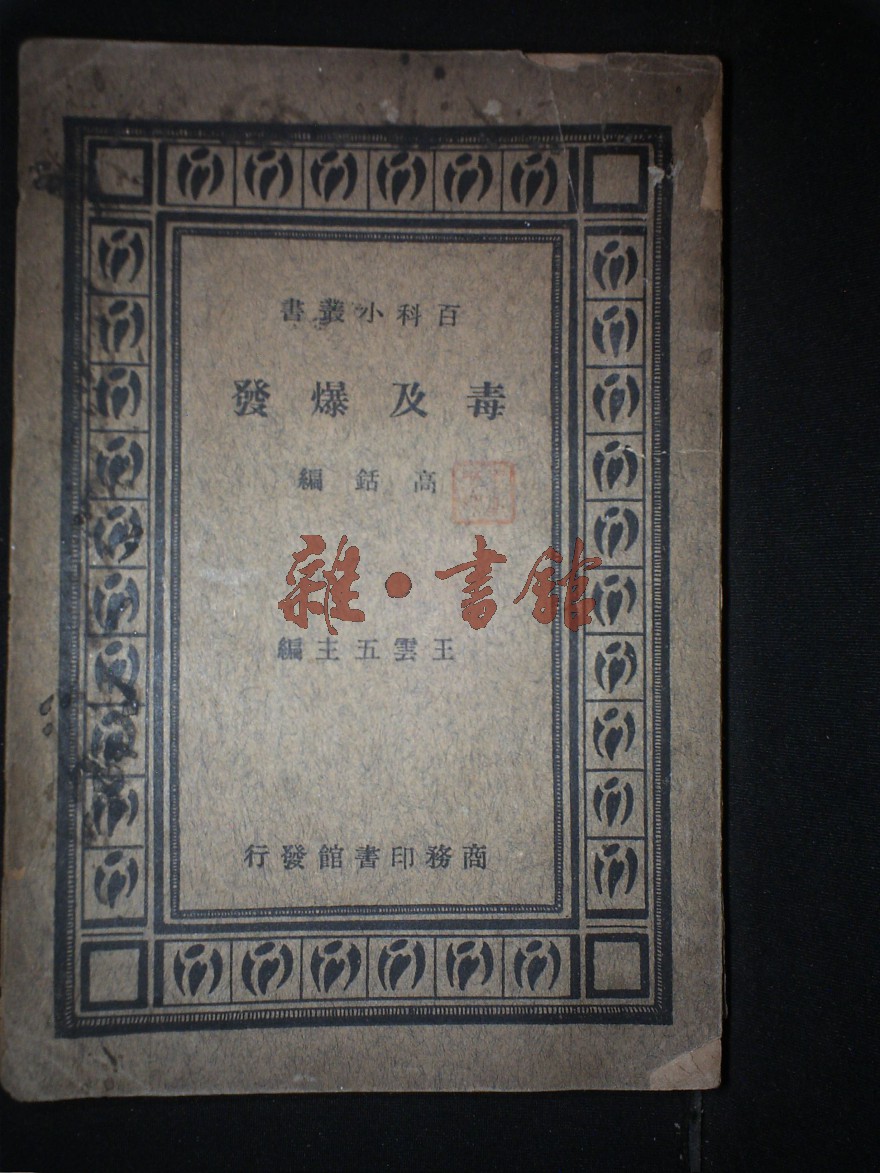 百科小叢書
毒及爆發
高銛編
雜·書館
王雲五主編
商務印書館發行